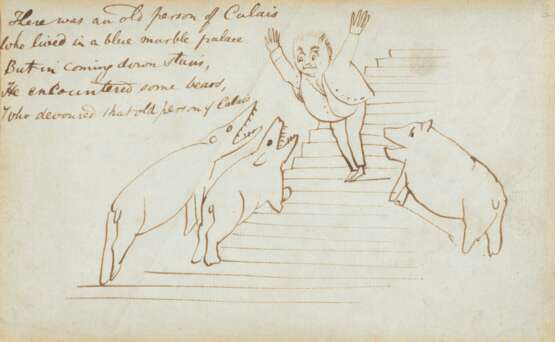 There was an old person of Calais
Who lived in a blue marble palace
But in coming down stairs,
He encountered some bears,
Who devoured that old person of Calais